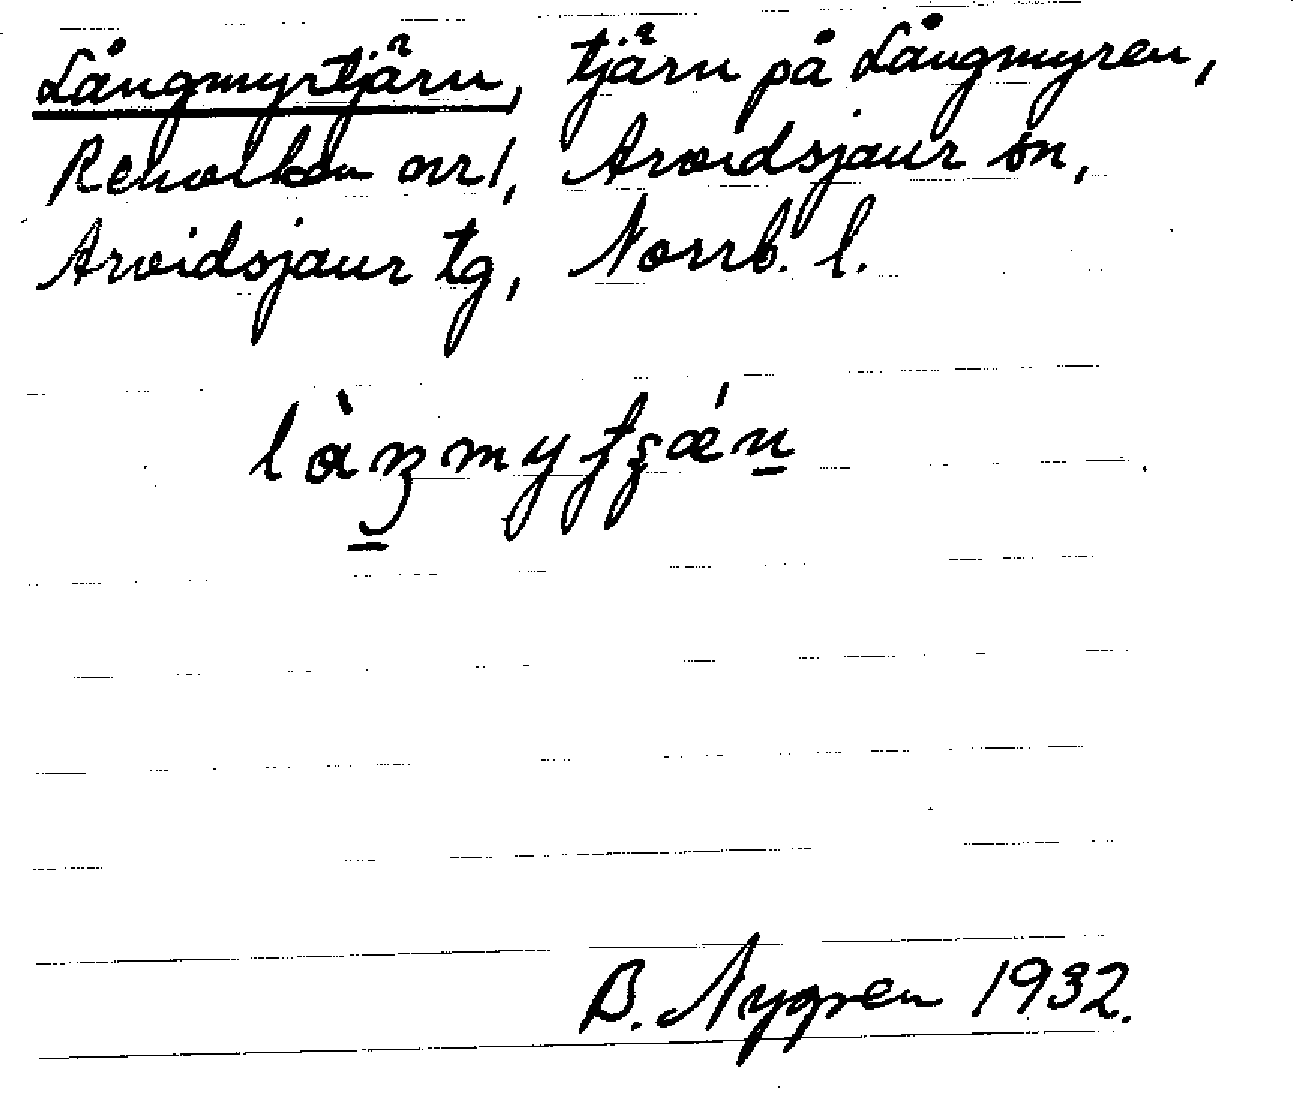 Långmyrtjärn, tjärn på Långmyren,
Renvallen nr 1, Arvidsjaur sn,
Arvidsjaur tg, Norrb. l.
B. Nygren 1932.